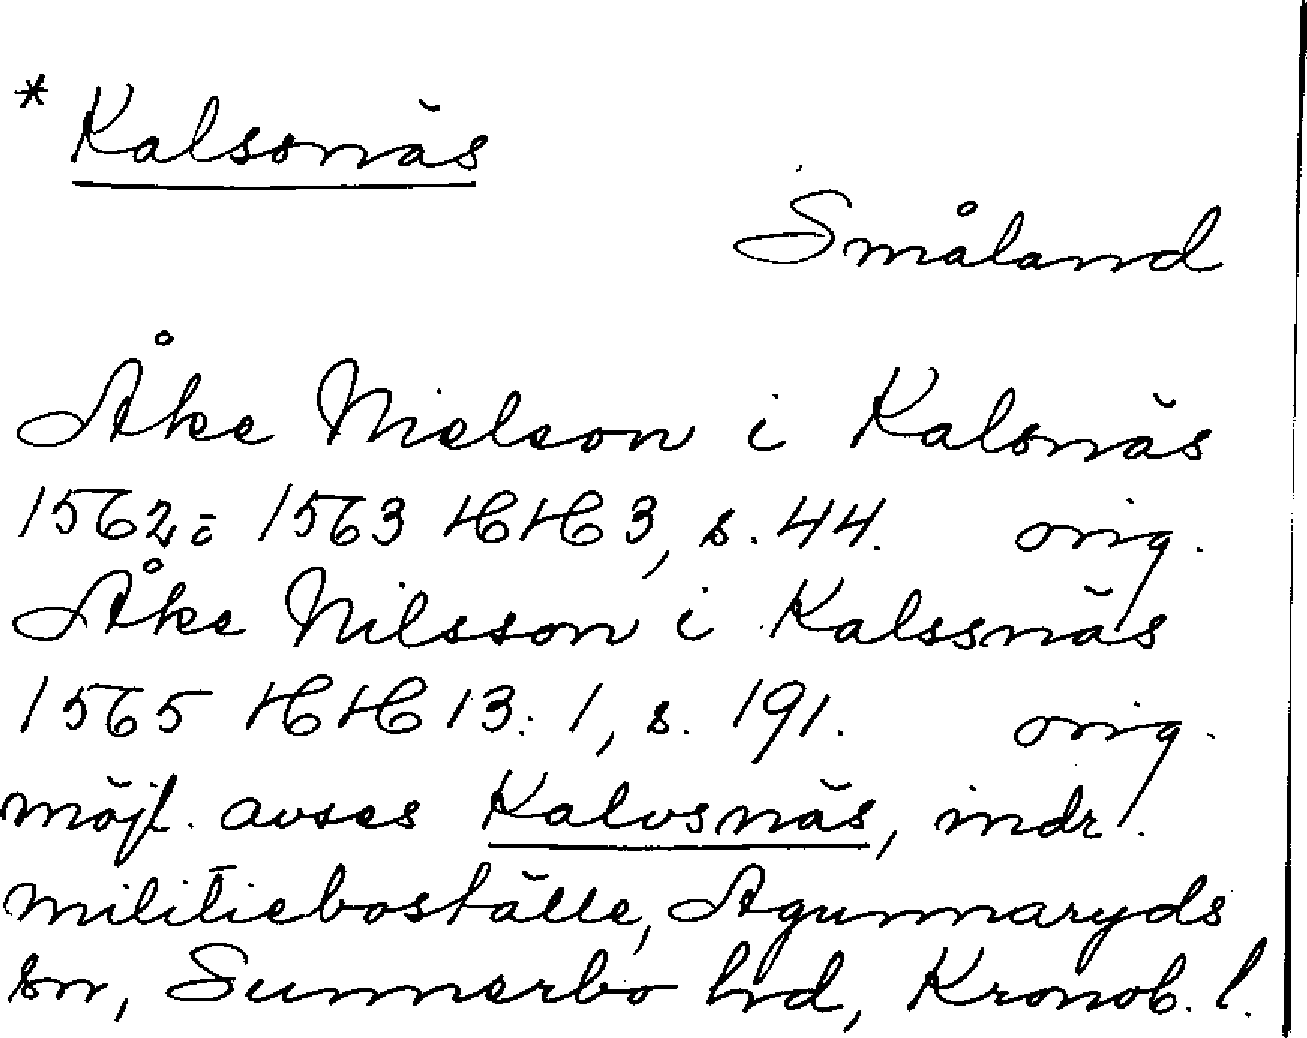 * Kalssnäs
Småland
Åke Nielson i Kalsnäs
1562-1563 HH 3, s. 44. orig.
Åke Nilsson i Kalssnäs
1565 HH 13:1, s. 191. orig.
möjl. avses Kalvsnäs, indr.
militieboställe, Agunnaryds
sn, Sunnerbo hd, Kronob. l.